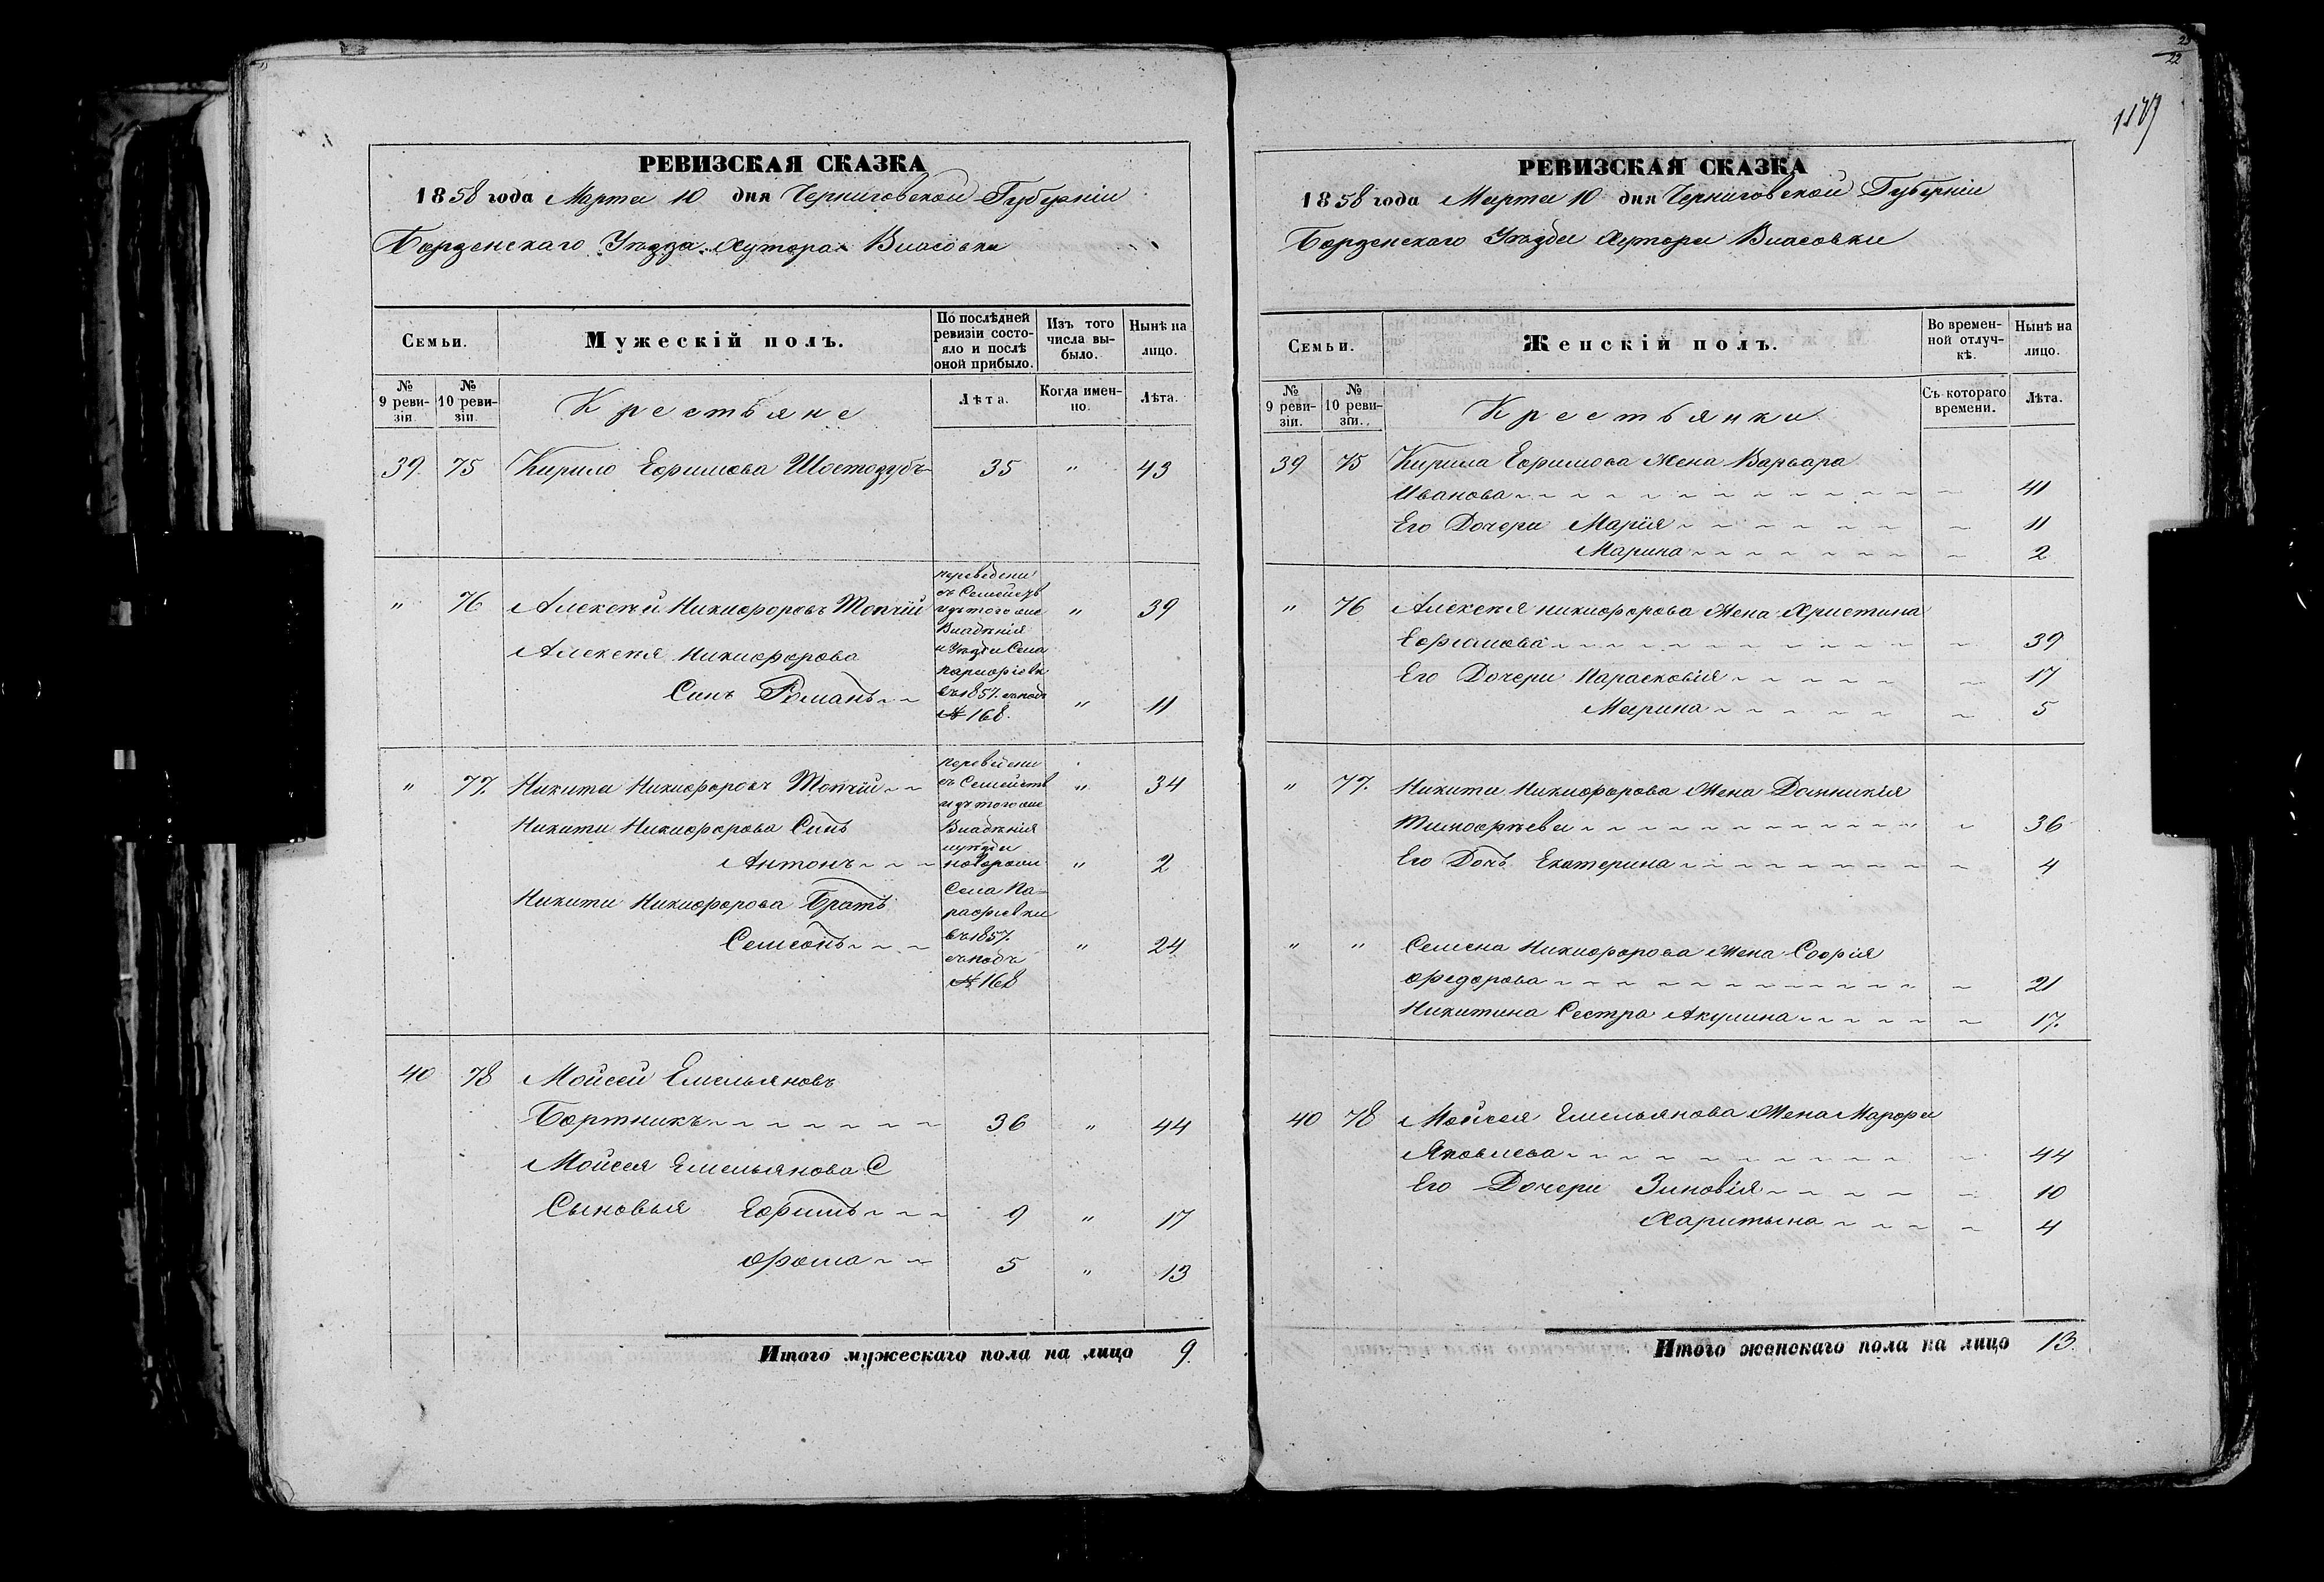 РЕВИЗСКАЯ СКАЗКА
1858 года Марта 10 дня Черниговской Губерніи
Борзенскаго Уѣзда Хутора Власовки
Семьи.
Мужескій полъ.
По послѣдней ревизіи состояло и послѣ оной прибыло.
Изъ того числа выбыло.
Нынѣ на лицо.
№ 9 ревизіи.
№ 10 ревизіи.
Крестьяне
Лѣта.
Когда именно.
Лѣта.
39. 75 Кирило Ефимова Шостодубъ 35 " 43
" 76 Алексѣй Никифоровъ Топчій " 39
Алексѣя Никифорова
Синъ Романъ " 11
переведени
съ Семейст
изъ того же
Владѣнія
и Уѣзда Села
въ 1857. съ подъ
№ 168.
" 77. Никита Никифоровъ Топчій " 34
Никити Никифорова Синъ
Антонъ новорож " 2
Никити Никифорова Братъ
Семенъ " 24
переведени
съ Семейств
изъ того же
Владѣнія
Села Па-
рафіевки
въ 1857.
съ подъ
№ 168
40 78 Мойсей Емельяновъ
Бортникъ 36 " 44
Мойсея Емельянова С
Сыновья Ефимъ 9 " 17
Фома 5 " 13
Итого мужескаго пола на лицо 9.
22
РЕВИЗСКАЯ СКАЗКА
1858 года Марта 10 дня Черниговской Губерніи
Борзенскаго Уѣзда Хутора Власовки
Семьи.
Женскій полъ.
Во временной отлучкѣ.
Нынѣ на лицо.
№ 9 ревизіи.
№ 10 ревизіи.
Крестьянки
Съ котораго времени.
Лѣта.
39 75 Кирила Ефимова Жена Варвара
Иванова 41
Его Дочери Марія 11
Марина 2
" 76 Алексѣя Никифорова Жена Христина
Ефимова 39
Его Дочери Парасковія 17
Марина 5
" 77. Никити Никифорова Жена Домникія
Тимофѣева 36
Его Дочь Екатерина 4
" " Семена Никифорова Жена Софія
Федорова 21
Никитина Сестра Акулина 17.
40 78 Мойсея Емельянова Жена Марфа
Яковлева 44
Его Дочери Зиновія 10
Харитына 4
Итого женскаго пола на лицо 13.